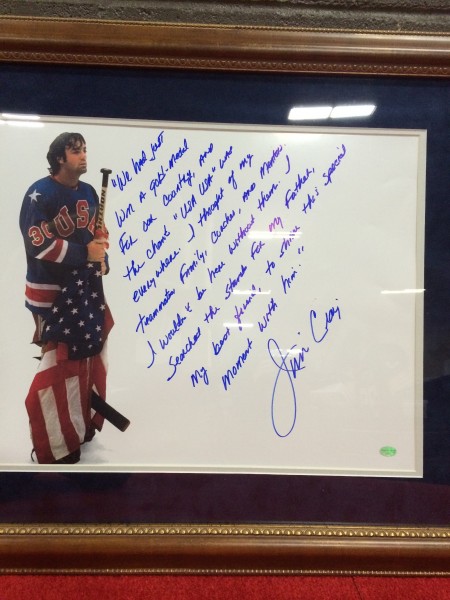 "We had just
Won a gold medal
For our country, and
the chant "USA USA" was
everywhere. I thought of my
teammates Family, Coaches, and Mentors.
I wouldn't be here without them. I
Searched the stands For my Father,
my best friend, to share this special
moment with him."
Jim Craig
30 USA